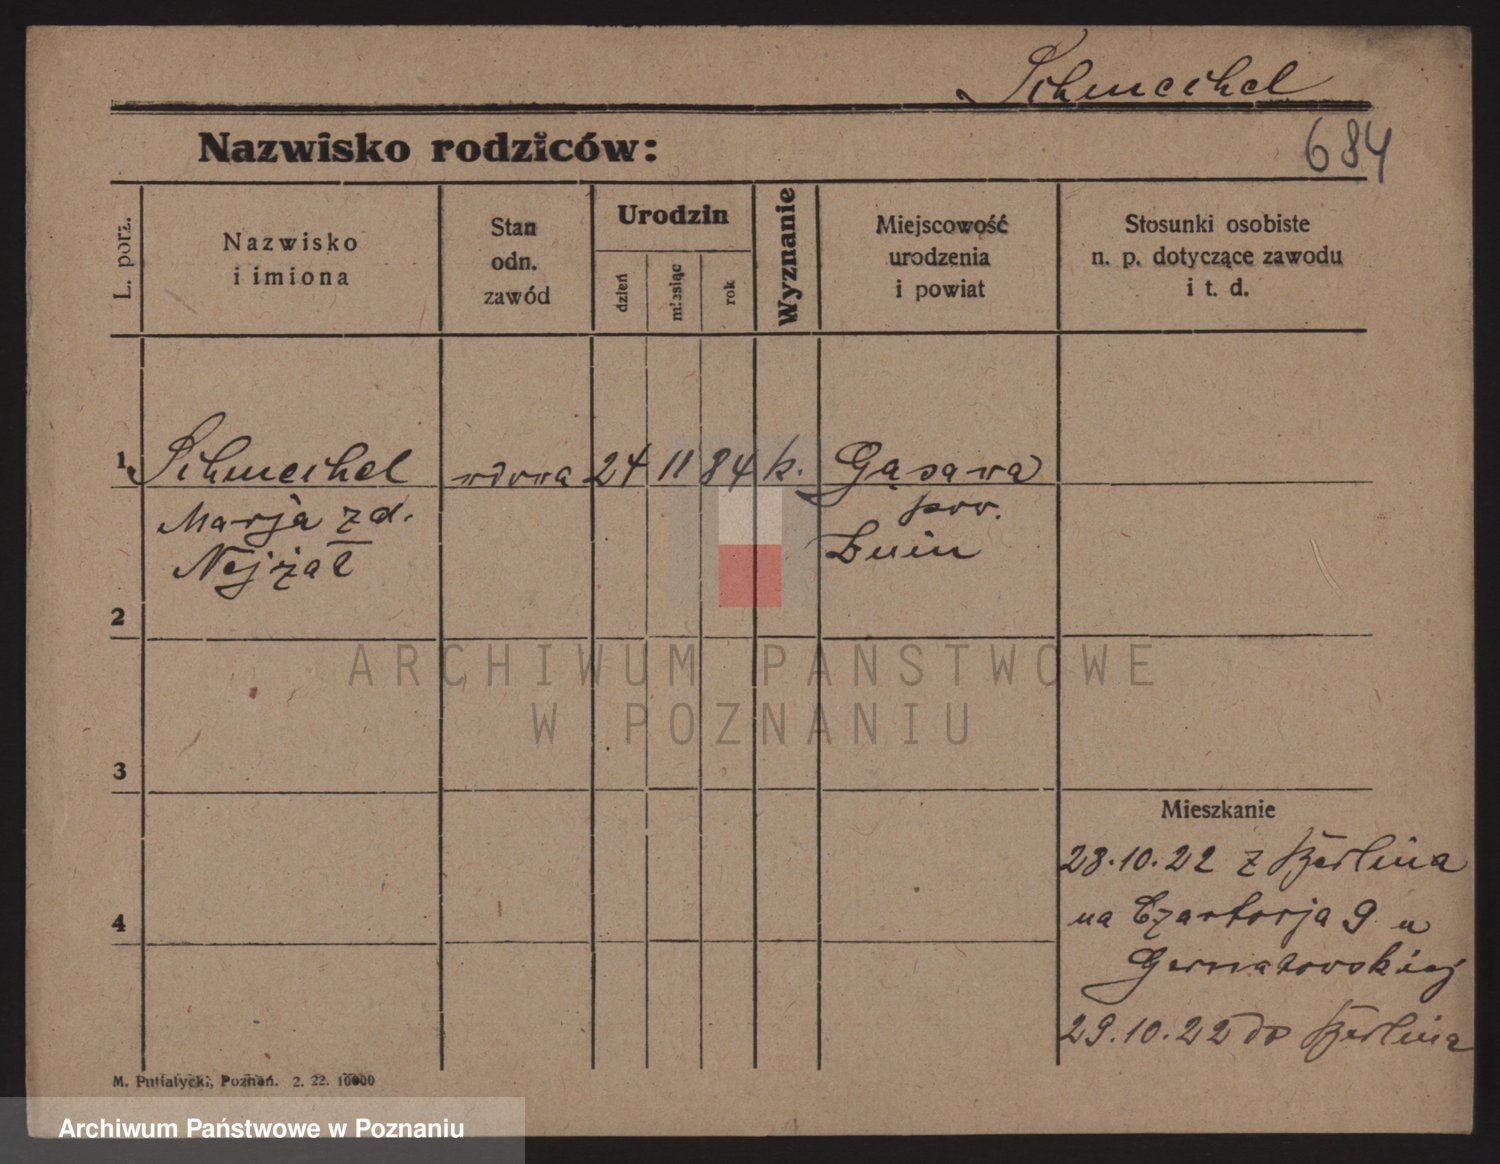 Schmeichel
Nazwisko rodziców:
684
L. porz.
Nazwisko
i imiona
Stan
odn.
zawód
Urodzin
dzień
miesiąc
rok
Wyznanie
Miejscowość
urodzenia
i powiat
Stosunki osobiste
n. p. dotyczące zawodu
i t. d.
1 Schmeichel wdowa 24 11 84 k. Gąsawa
Marja zd. pow.
Nejżał Żnin
2
ARCHIWUM PAŃSTWOWE
W POZNANIU
3
Mieszkanie
28.10.22 z Berlina
4
na Czartorja 9 u
29.10.22 do Berlina
M. Putiatycki, Poznań. 2. 22. 10000
Archiwum Państwowe w Poznaniu